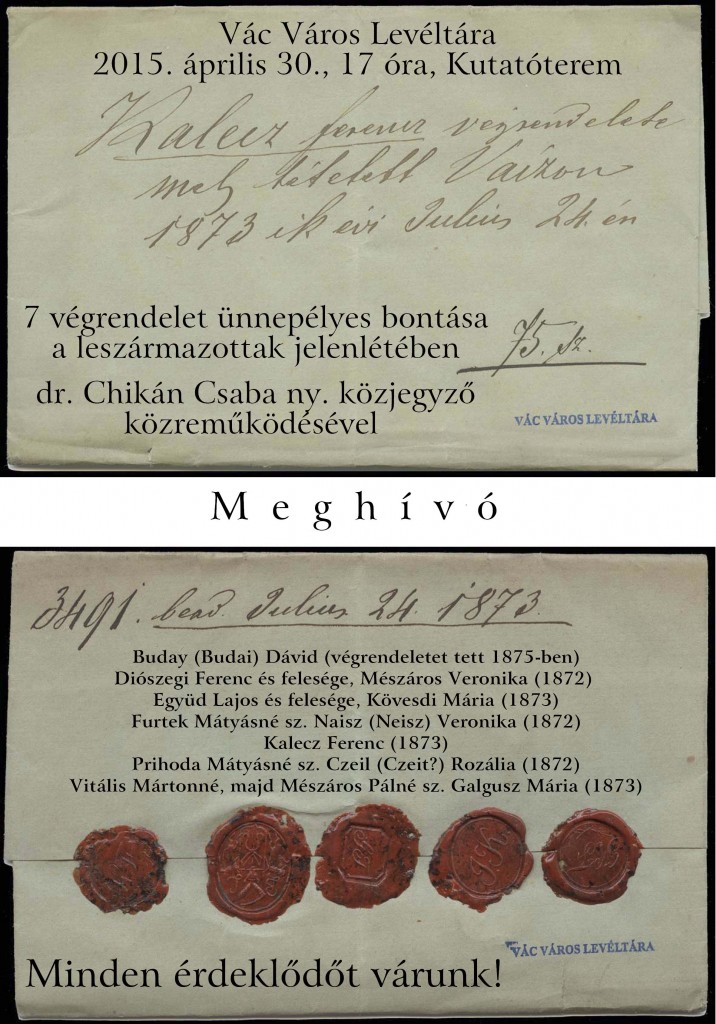 Vác Város Levéltára
2015. április 30., 17 óra, Kutatóterem
Kalecz ferencz végrendelete
mely tétetett Vaízon
1873 ik évi Julius 24. én
7 végrendelet ünnepélyes bontása
a leszármazottak jelenlétében
75. sz.
dr. Chikán Csaba ny. közjegyző
közreműködésével
VÁC VÁROS LEVÉLTÁRA
Meghívó
3491. bead. Julius 24. 1873.
Buday (Budai) Dávid (végrendeletet tett 1875-ben)
Diószegi Ferenc és felesége, Mészáros Veronika (1872)
Együd Lajos és felesége, Kövesdi Mária (1873)
Furtek Mátyásné sz. Naisz (Neisz) Veronika (1872)
Kalecz Ferenc (1873)
Prihoda Mátyásné sz. Czeil (Czeit?) Rozália (1872)
Vitális Mártonné, majd Mészáros Pálné sz. Galgusz Mária (1873)
VÁC VÁROS LEVÉLTÁRA
Minden érdeklődőt várunk!